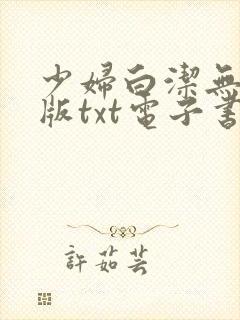 少婦白潔無
版txt電子書
許茹芸